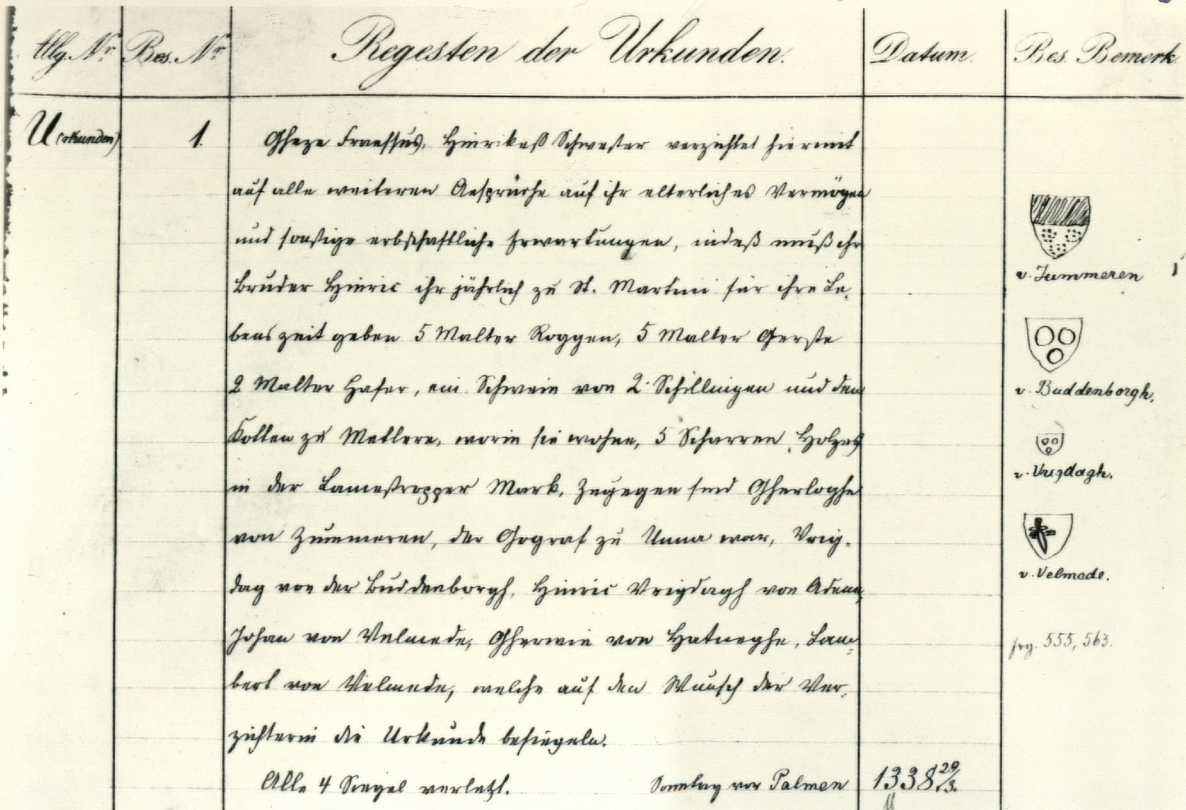 Allg. Nr. Bes. Nr. Regesten der Urkunden. Datum. Bes. Bemerk
U(rkunden) 1. Gheze Hinrikeß Schwester verzichtet hiermit
auf alle weiteren Ansprüche auf ihr elterliches Vermögen
und sonstige erbschaftliche Erwartungen, indeß muß ihr
Bruder Hinric ihr jährlich zu St. Martini für ihre Le-
benszeit geben 5 Malter Roggen, 5 Malter Gerste
2 Malter Hafer, ein Schwein von 2 Schillingen und den
Kotten zu Metlere, worin sie wohne, 5 Scharren Holzes
in der Mark. Zugegen sind Gherloghe
von Zummeren, der Gograf zu Unna war, Vrig-
dag von der Buddenborgh, Hinric Vrigdagh von Adene,
Johan von Velmede, Gherwin von Hatneghe, Lam-
bert von Velmede, welche auf den Wunsch der Ver-
zichterin die Urkunde besiegeln.
Alle 4 Siegel verletzt. Sonntag vor Palmen 1338 29/3.
v. Zummeren
v. Buddenborgh.
v. Vrigdagh.
v. Velmede.
frg. 555, 563.